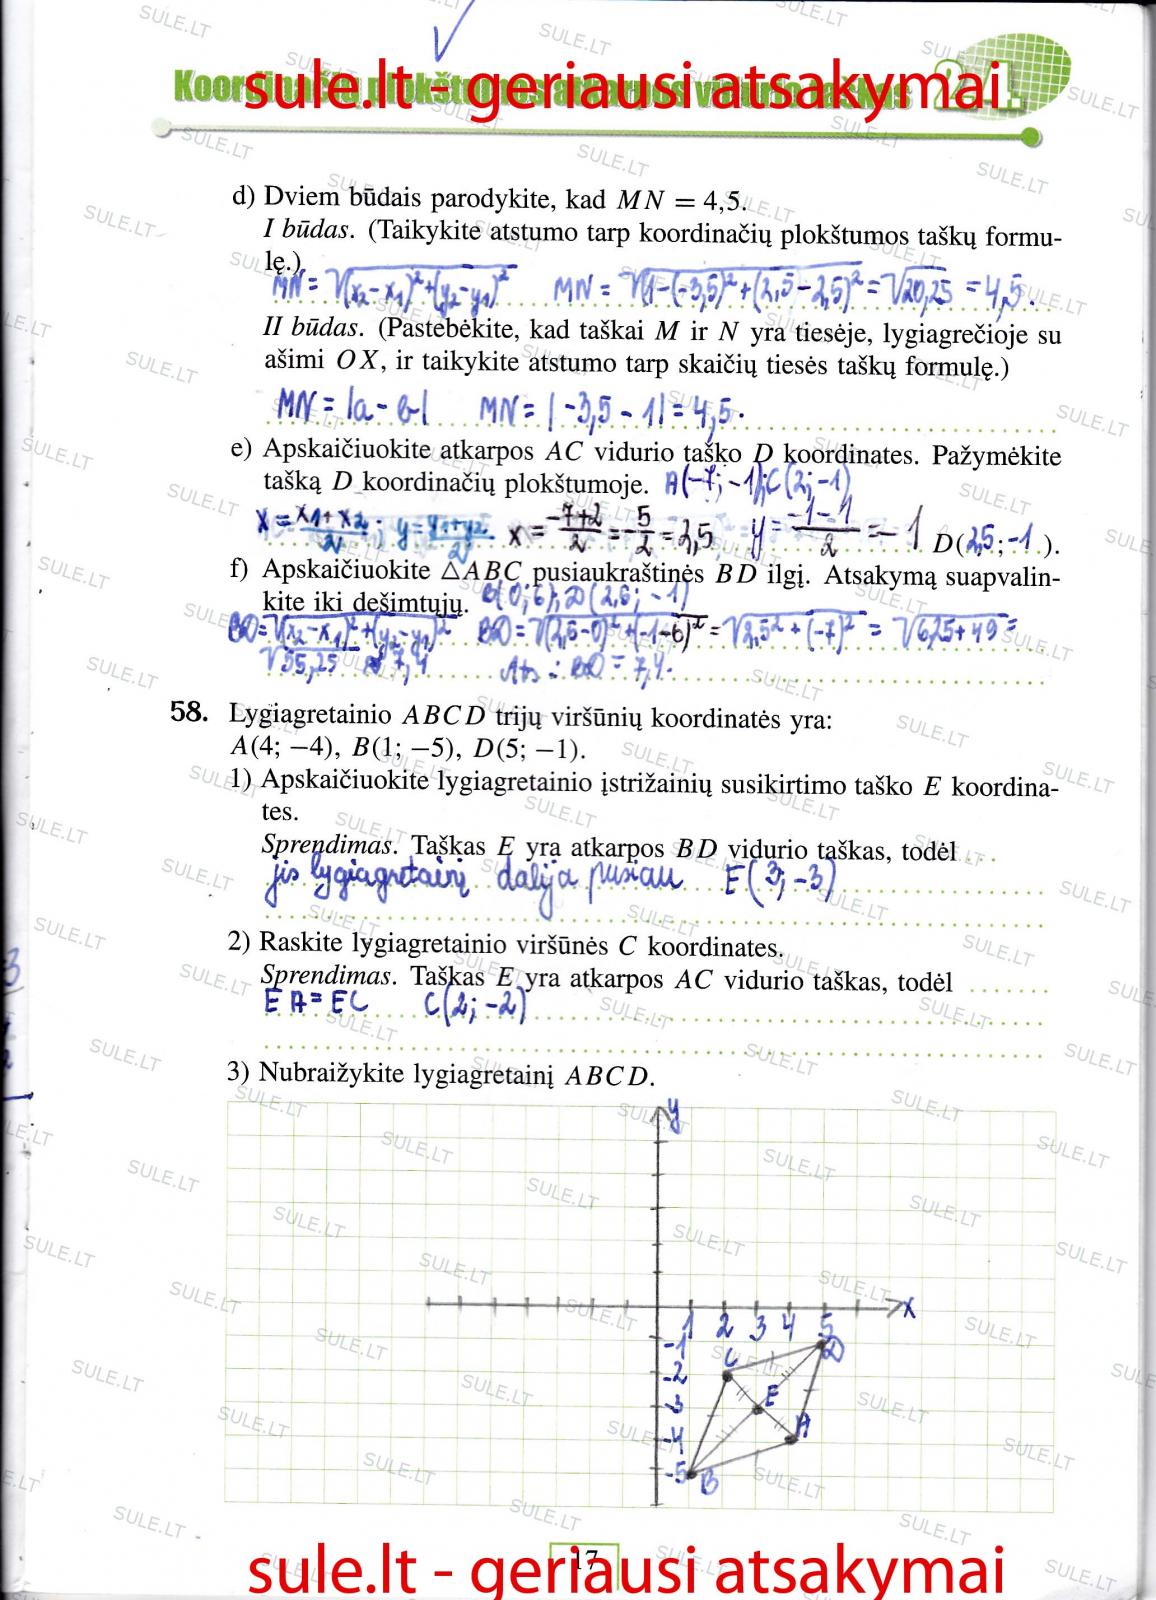 sule.lt - geriausi atsakymai
d) Dviem būdais parodykite, kad MN = 4,5.
I būdas. (Taikykite atstumo tarp koordinačių plokštumos taškų formu-
lę.)
MN = √(x₂-x₁)²+(y₂-y₁)² MN = √(1-(-3,5)²+(2,5-2,5)² = √20,25 = 4,5.
II būdas. (Pastebėkite, kad taškai M ir N yra tiesėje, lygiagrečioje su
ašimi OX, ir taikykite atstumo tarp skaičių tiesės taškų formulę.)
MN = |a-b| MN = |-3,5-1| = 4,5.
e) Apskaičiuokite atkarpos AC vidurio taško D koordinates. Pažymėkite
tašką D koordinačių plokštumoje. A(-7; -1); C(2; -1)
x = x₁+x₂/2; y = y₁+y₂/2 x = -7+2/2 = -5/2 = 2,5 y = -1-1/2 = -1 D(2,5; -1).
f) Apskaičiuokite △ABC pusiaukraštinės BD ilgį. Atsakymą suapvalin-
kite iki dešimtųjų. B(0;6); D(2,5; -1)
BD = √(x₂-x₁)²+(y₂-y₁)² BD = √(2,5-0)²+(-1-6)² = √2,5²+(-7)² = √6,25+49 =
√55,25 ≈ 7,4 Ats: BD = 7,4.
58. Lygiagretainio ABCD trijų viršūnių koordinatės yra:
A(4; −4), B(1; −5), D(5; −1).
1) Apskaičiuokite lygiagretainio įstrižainių susikirtimo taško E koordina-
tes.
Sprendimas. Taškas E yra atkarpos BD vidurio taškas, todėl
jis lygiagretainį dalija pusiau E(3; -3)
2) Raskite lygiagretainio viršūnės C koordinates.
Sprendimas. Taškas E yra atkarpos AC vidurio taškas, todėl
EA = EC C(2; -2)
3) Nubraižykite lygiagretainį ABCD.
y
x
1 2 3 4 5
-1
D
C
-2
E
-3
A
-4
-5
B
17
sule.lt - geriausi atsakymai